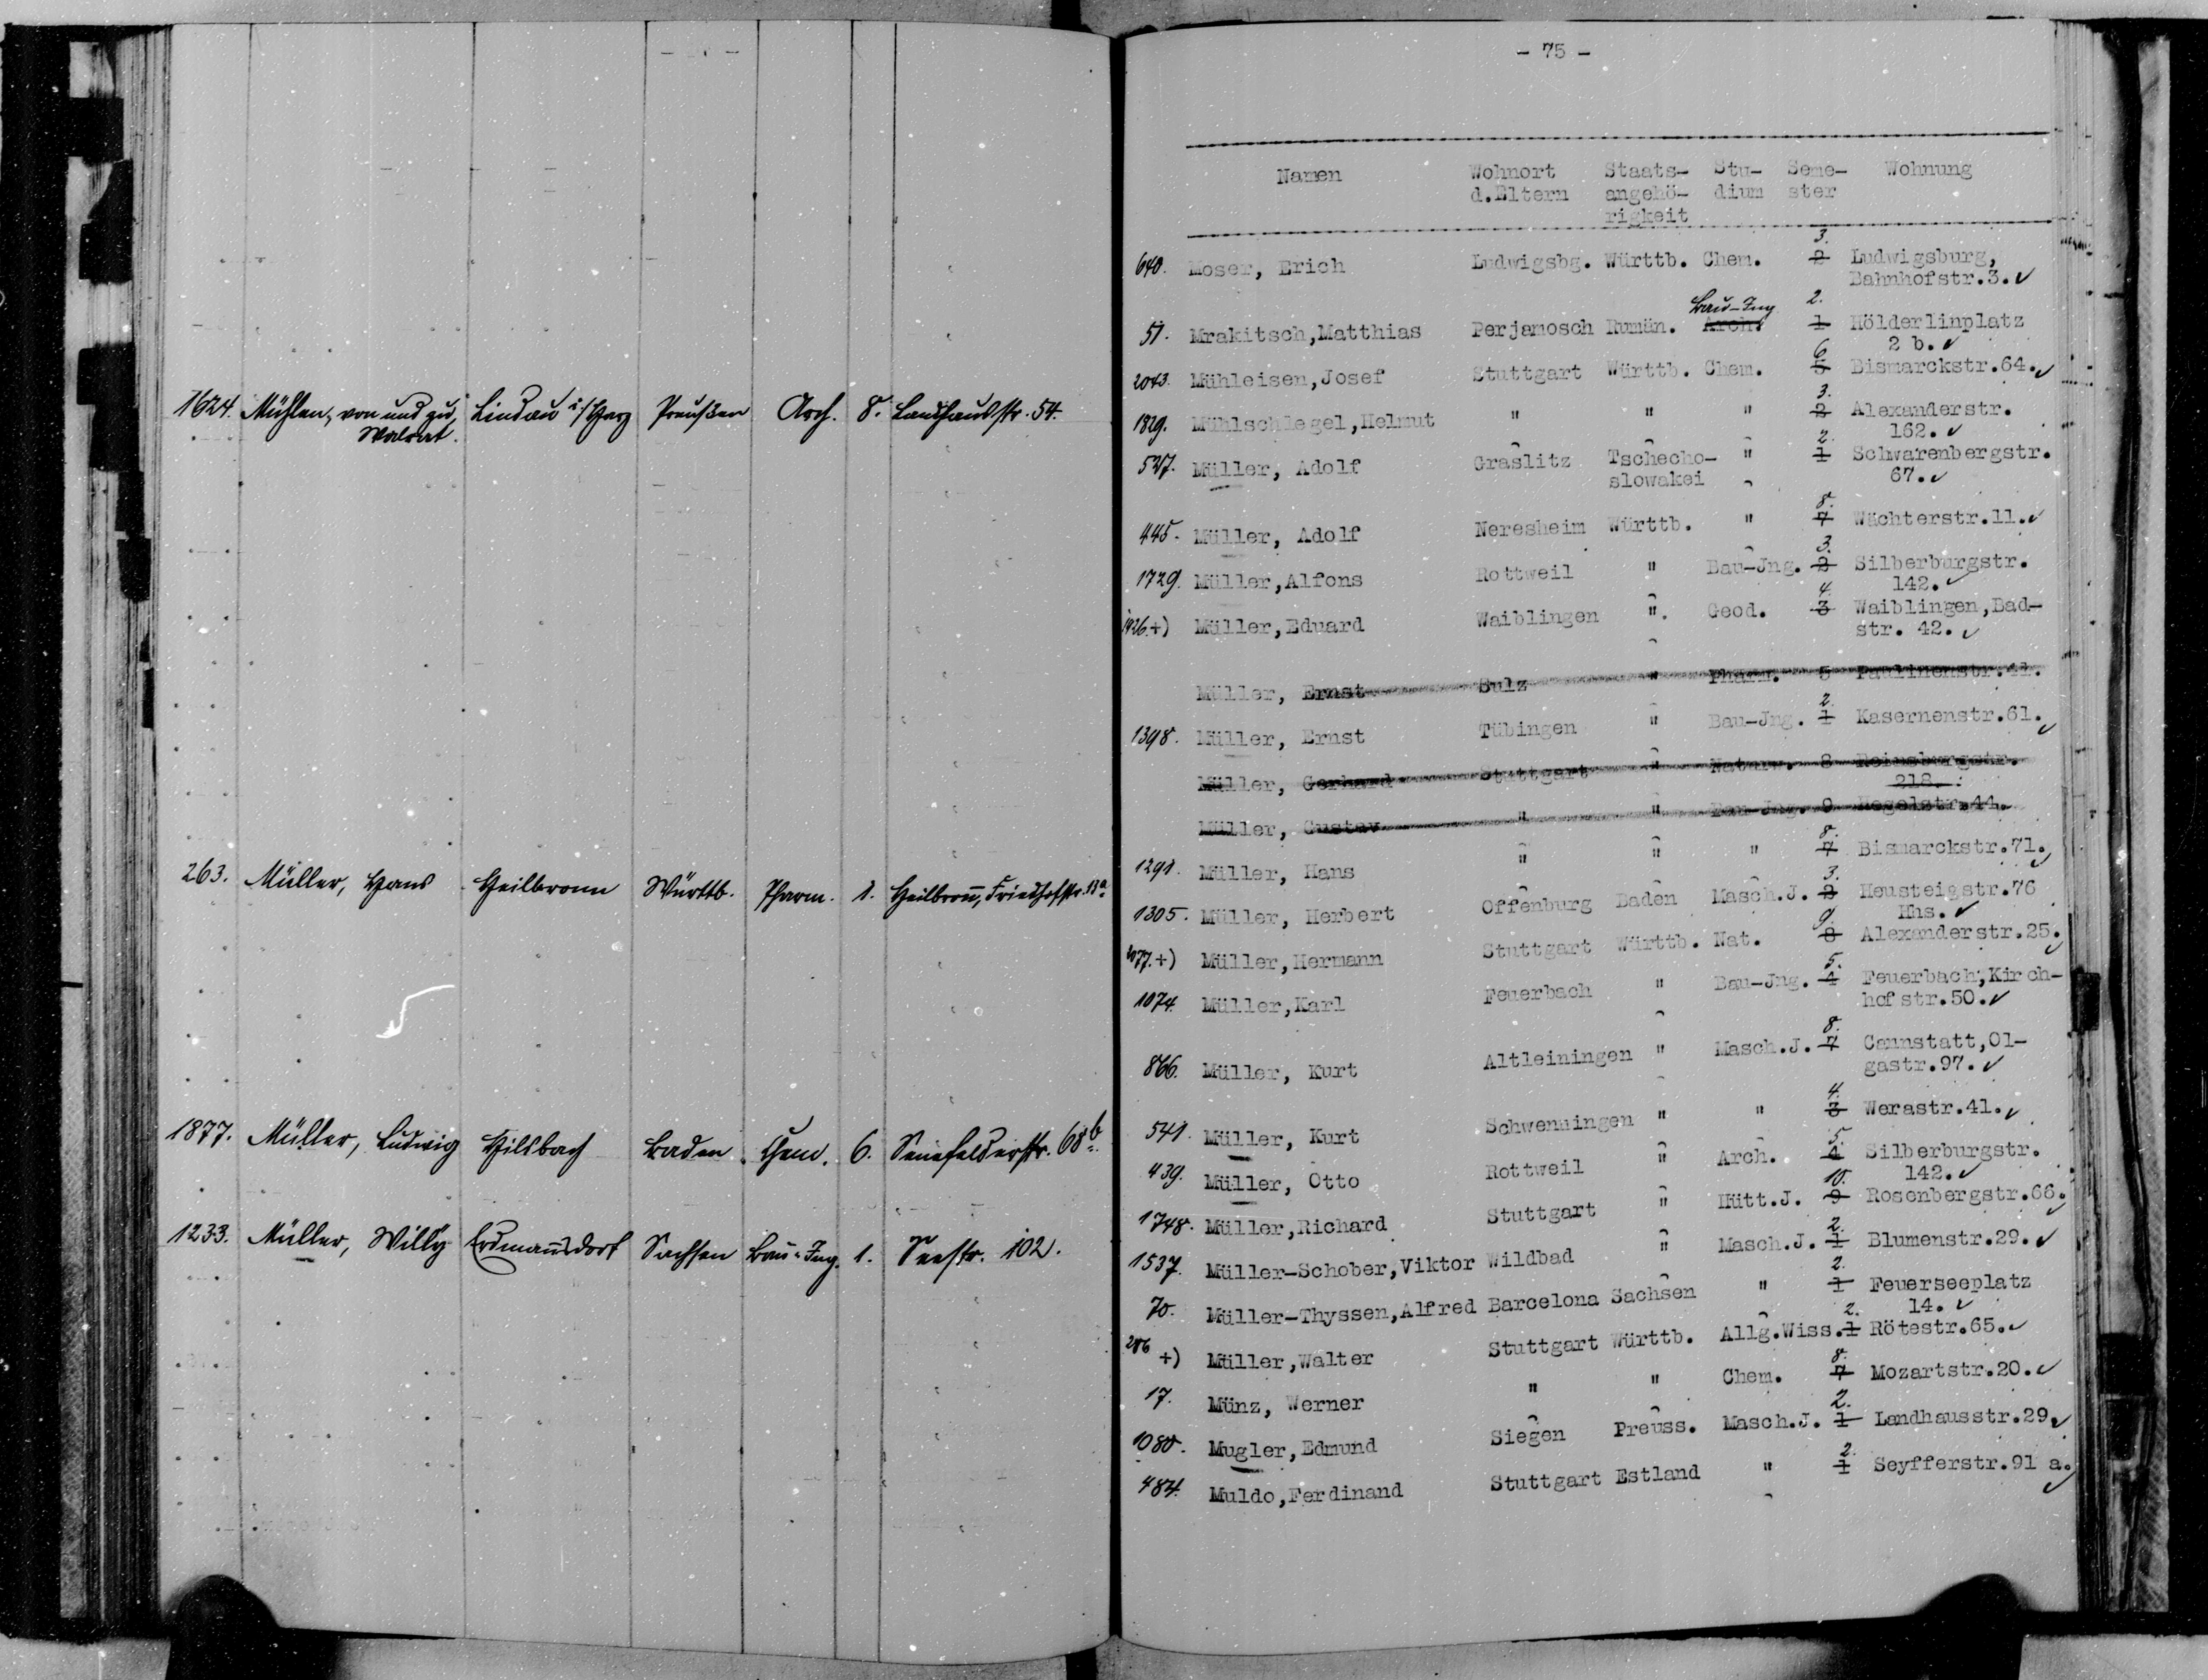 1624. Mühlen, von und zu, Lindau i/Harz Preußen Arch. 8. Landhausstr. 54.
Walrat.
263. Müller, Hans Heilbronn Württb. Pharm. 1. Heilbronn, Friedhofstr. 33a
1877. Müller, Ludwig Hilsbach Baden Chem. 6. Senefelderstr. 68b.
1233. Müller, Willy Erdmannsdorf Sachsen Bau-Ing. 1. Seestr. 102.
- 75 -
Namen Wohnort Staats- Stu- Seme- Wohnung
d.Eltern angehö- dium ster
rigkeit
3.
640. Moser, Erich Ludwigsbg. Württb. Chem. 2 Ludwigsburg,
Bahnhofstr.3.✓
Bau-Ing 2.
51. Mrakitsch,Matthias Perjamosch Rumän. Arch. 1 Hölderlinplatz
2 b.✓
6
2043. Mühleisen,Josef Stuttgart Württb. Chem. 5 Bismarckstr.64.✓
3.
1829. Mühlschlegel,Helmut " " " 2 Alexanderstr.
162.✓
2.
527. Müller, Adolf Graslitz Tschecho- " 1 Schwarenbergstr.
slowakei 67.✓
8.
445. Müller, Adolf Neresheim Württb. " 7 Wächterstr.11.✓
3.
1729. Müller,Alfons Rottweil " Bau-Jng. 2 Silberburgstr.
142.✓
4.
1426.+) Müller,Eduard Waiblingen ". Geod. 3 Waiblingen,Bad-
str. 42.✓
Müller, Ernst Sulz " Pharm. 5 Paulinenstr.41.
2.
1398. Müller, Ernst Tübingen " Bau-Jng. 1 Kasernenstr.61.✓
Müller, Gerhard Stuttgart " Naturw. 8 Reinsburgstr.
218.
Müller, Gustav " " Bau-Jng. 9 Hegelstr.44.
8.
1291. Müller, Hans " " " 7 Bismarckstr.71.✓
3.
1305. Müller, Herbert Offenburg Baden Masch.J. 2 Heusteigstr.76
Hhs.✓
9
2077.+) Müller,Hermann Stuttgart Württb. Nat. 8 Alexanderstr.25.✓
5.
1074. Müller,Karl Feuerbach " Bau-Jng. 4 Feuerbach,Kirch-
hofstr.50.✓
8.
866. Müller, Kurt Altleiningen " Masch.J. 7 Cannstatt,Ol-
gastr.97.✓
4.
541. Müller, Kurt Schwenningen " " 3 Werastr.41.✓
5.
439. Müller, Otto Rottweil " Arch. 4 Silberburgstr.
142.✓
10.
1748. Müller,Richard Stuttgart " Hütt.J. 9 Rosenbergstr.66.✓
2.
1537. Müller-Schober,Viktor Wildbad " Masch.J. 1 Blumenstr.29.✓
2.
70. Müller-Thyssen,Alfred Barcelona Sachsen " 1 Feuerseeplatz
14.✓
2.
286 +) Müller,Walter Stuttgart Württb. Allg.Wiss.1 Rötestr.65.✓
8.
17. Münz, Werner " " Chem. 7 Mozartstr.20.✓
2.
1080. Mugler,Edmund Siegen Preuss. Masch.J. 1 Landhausstr.29.✓
2.
484. Muldo,Ferdinand Stuttgart Estland " 1 Seyfferstr.91 a.✓